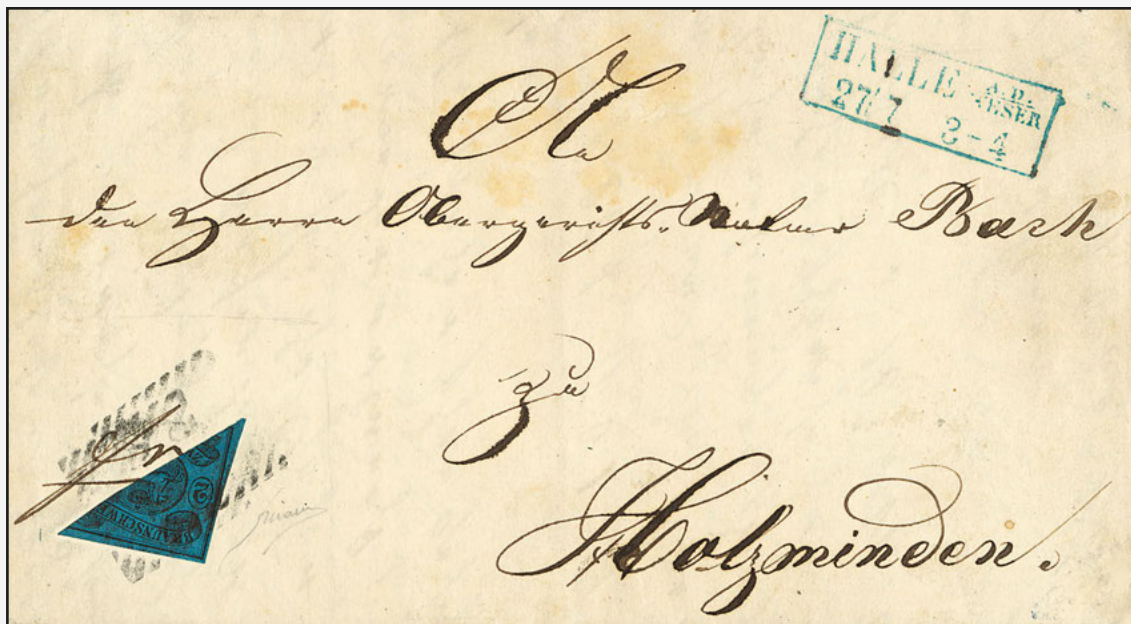 HALLE A.D.
WESER
27 7 3-4
An
den Herrn Obergerichts-Notar Bach
zu
Holzminden.
fr
2
BRAUNSCHWE